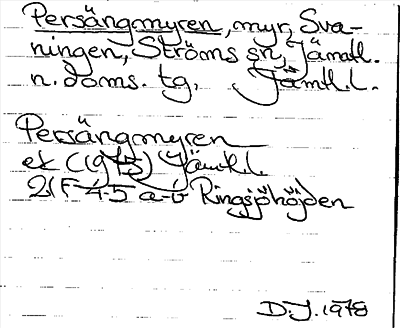 Persängmyren, myr, Sva-
ningen, Ströms sn, Jämtl.
n. doms. tg. Jämtl. l.
Persängmyren
ek (1975) Jämtl. l.
21F 4-5 a-b Ringsjöhöjden
D.J. 1978